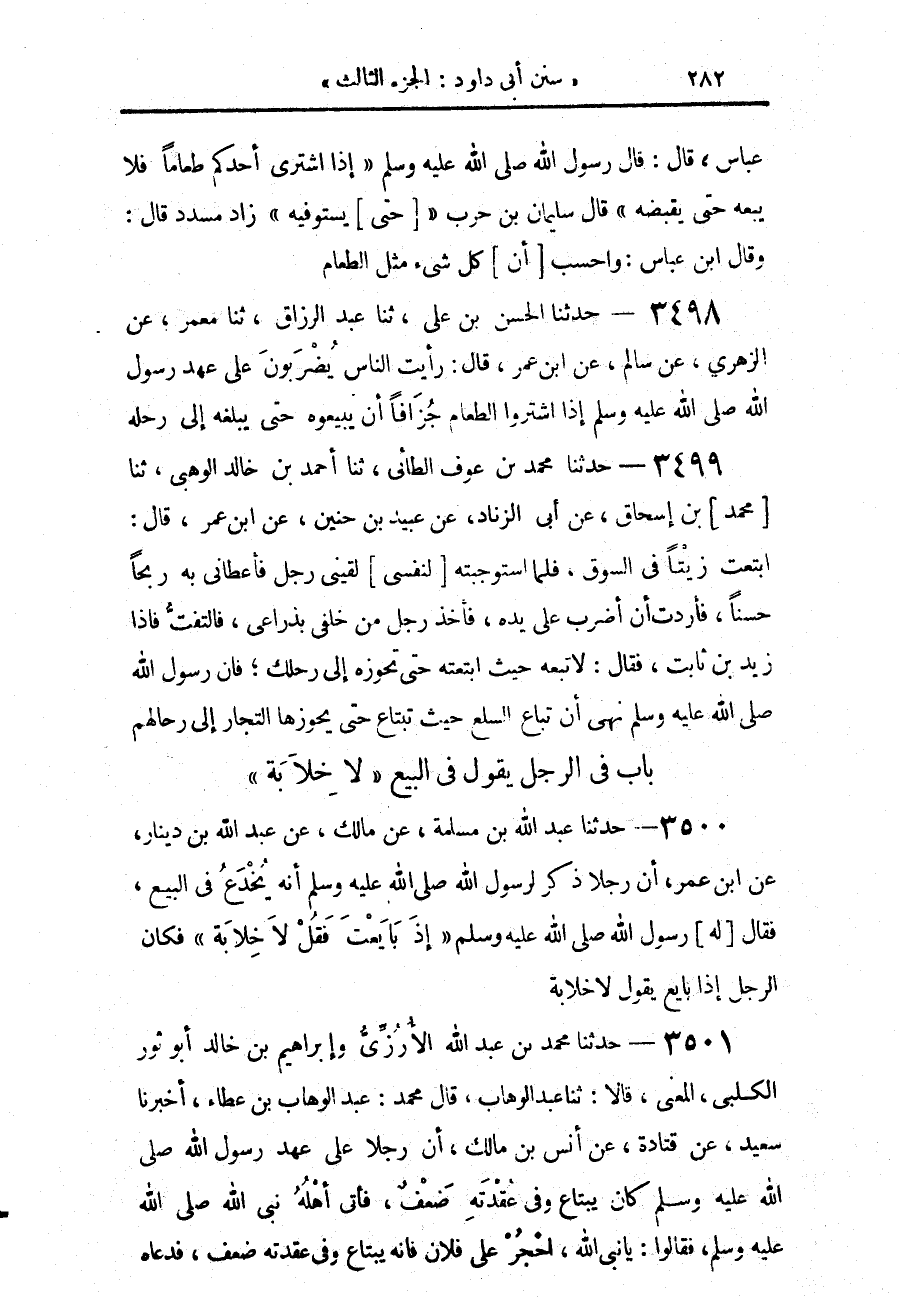 ٢٨٢ « سنن أبى داود : الجزء الثالث »
عباس ، قال : قال رسول الله صلى الله عليه وسلم « إذا اشترى أحدكم طعاماً فلا
يبعه حتى يقبضه » قال سليمان بن حرب « [ حتى ] يستوفيه » زاد مسدد قال :
وقال ابن عباس : واحسب [ أن ] كل شىء مثل الطعام
٣٤٩٨ — حدثنا الحسن بن على ، ثنا عبد الرزاق ، ثنا معمر ، عن
الزهري ، عن سالم ، عن ابن عمر ، قال : رأيت الناس يُضْرَبونَ على عهد رسول
الله صلى الله عليه وسلم إذا اشتروا الطعام جُزَافاً أن يبيعوه حتى يبلغه إلى رحله
٣٤٩٩ — حدثنا محمد بن عوف الطائى ، ثنا أحمد بن خالد الوهبى ، ثنا
[ محمد ] بن إسحاق ، عن أبى الزناد، عن عبيد بن حنين ، عن ابن عمر ، قال :
ابتعت زيْتاً فى السوق ، فلما استوجبته [ لنفسى ] لقينى رجل فأعطانى به ربحاً
حسناً ، فأردت أن أضرب على يده ، فأخذ رجل من خلفى بذراعى ، فالتفتُّ فاذا
زيد بن ثابت ، فقال : لاتبعه حيث ابتعته حتى تحوزه إلى رحلك ؛ فان رسول الله
صلى الله عليه وسلم نهى أن تباع السلع حيث تبتاع حتى يحوزها التجار إلى رحالهم
باب فى الرجل يقول فى البيع « لا خِلاَبَة »
٣٥٠٠ — حدثنا عبد الله بن مسلمة ، عن مالك ، عن عبد الله بن دينار،
عن ابن عمر، أن رجلا ذكر لرسول الله صلى الله عليه وسلم أنه يُخْدَعُ فى البيع ،
فقال [ له ] رسول الله صلى الله عليه وسلم « إذَ بَايَعْتَ فَقُلْ لاَ خِلابَة » فكان
الرجل إذا بايع يقول لاخلابة
٣٥٠١ — حدثنا محمد بن عبد الله الأُرُزِّىُّ وإبراهيم بن خالد أبو ثور
الكلبى ، المعنى ، قالا : ثنا عبدالوهاب ، قال محمد : عبد الوهاب بن عطاء ، أخبرنا
سعيد ، عن قتادة ، عن أنس بن مالك ، أن رجلا على عهد رسول الله صلى
الله عليه وسلم كان يبتاع وفى عُقْدَتِهِ ضَعْفٌ ، فأتى أهْلُهُ نبى الله صلى الله
عليه وسلم، فقالوا : يانبى الله ، احْجُرْ على فلان فانه يبتاع وفى عقدته ضعف ، فدعاه